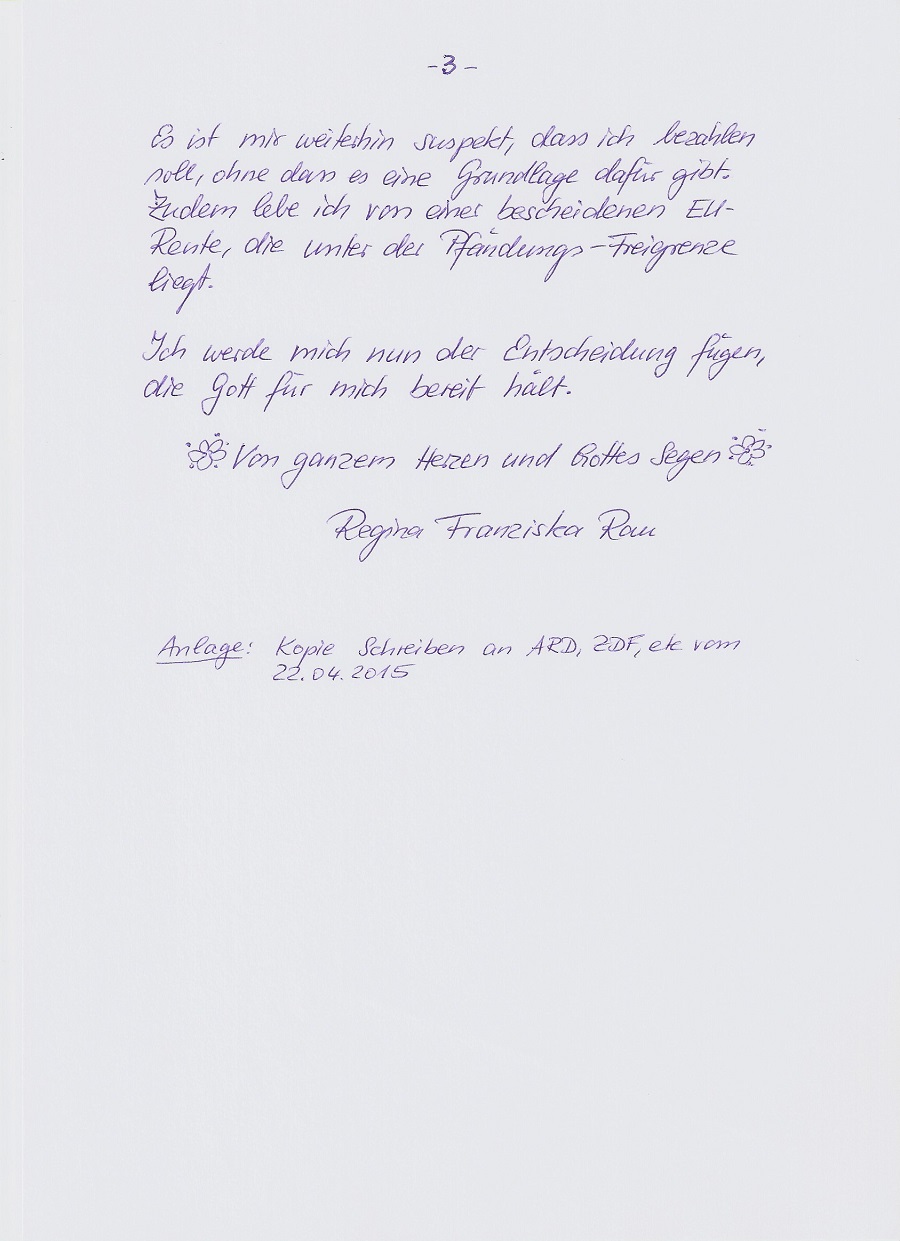 -3-
Es ist mir weiterhin suspekt, dass ich bezahlen
soll, ohne dass es eine Grundlage dafür gibt.
Zudem lebe ich von einer bescheidenen EU-
Rente, die unter der Pfändungs-Freigrenze
liegt.
Ich werde mich nun der Entscheidung fügen,
die Gott für mich bereit hält.
Von ganzem Herzen und Gottes Segen
Regina Franziska Rau
Anlage: Kopie Schreiben an ARD, ZDF, etc vom
22.04.2015